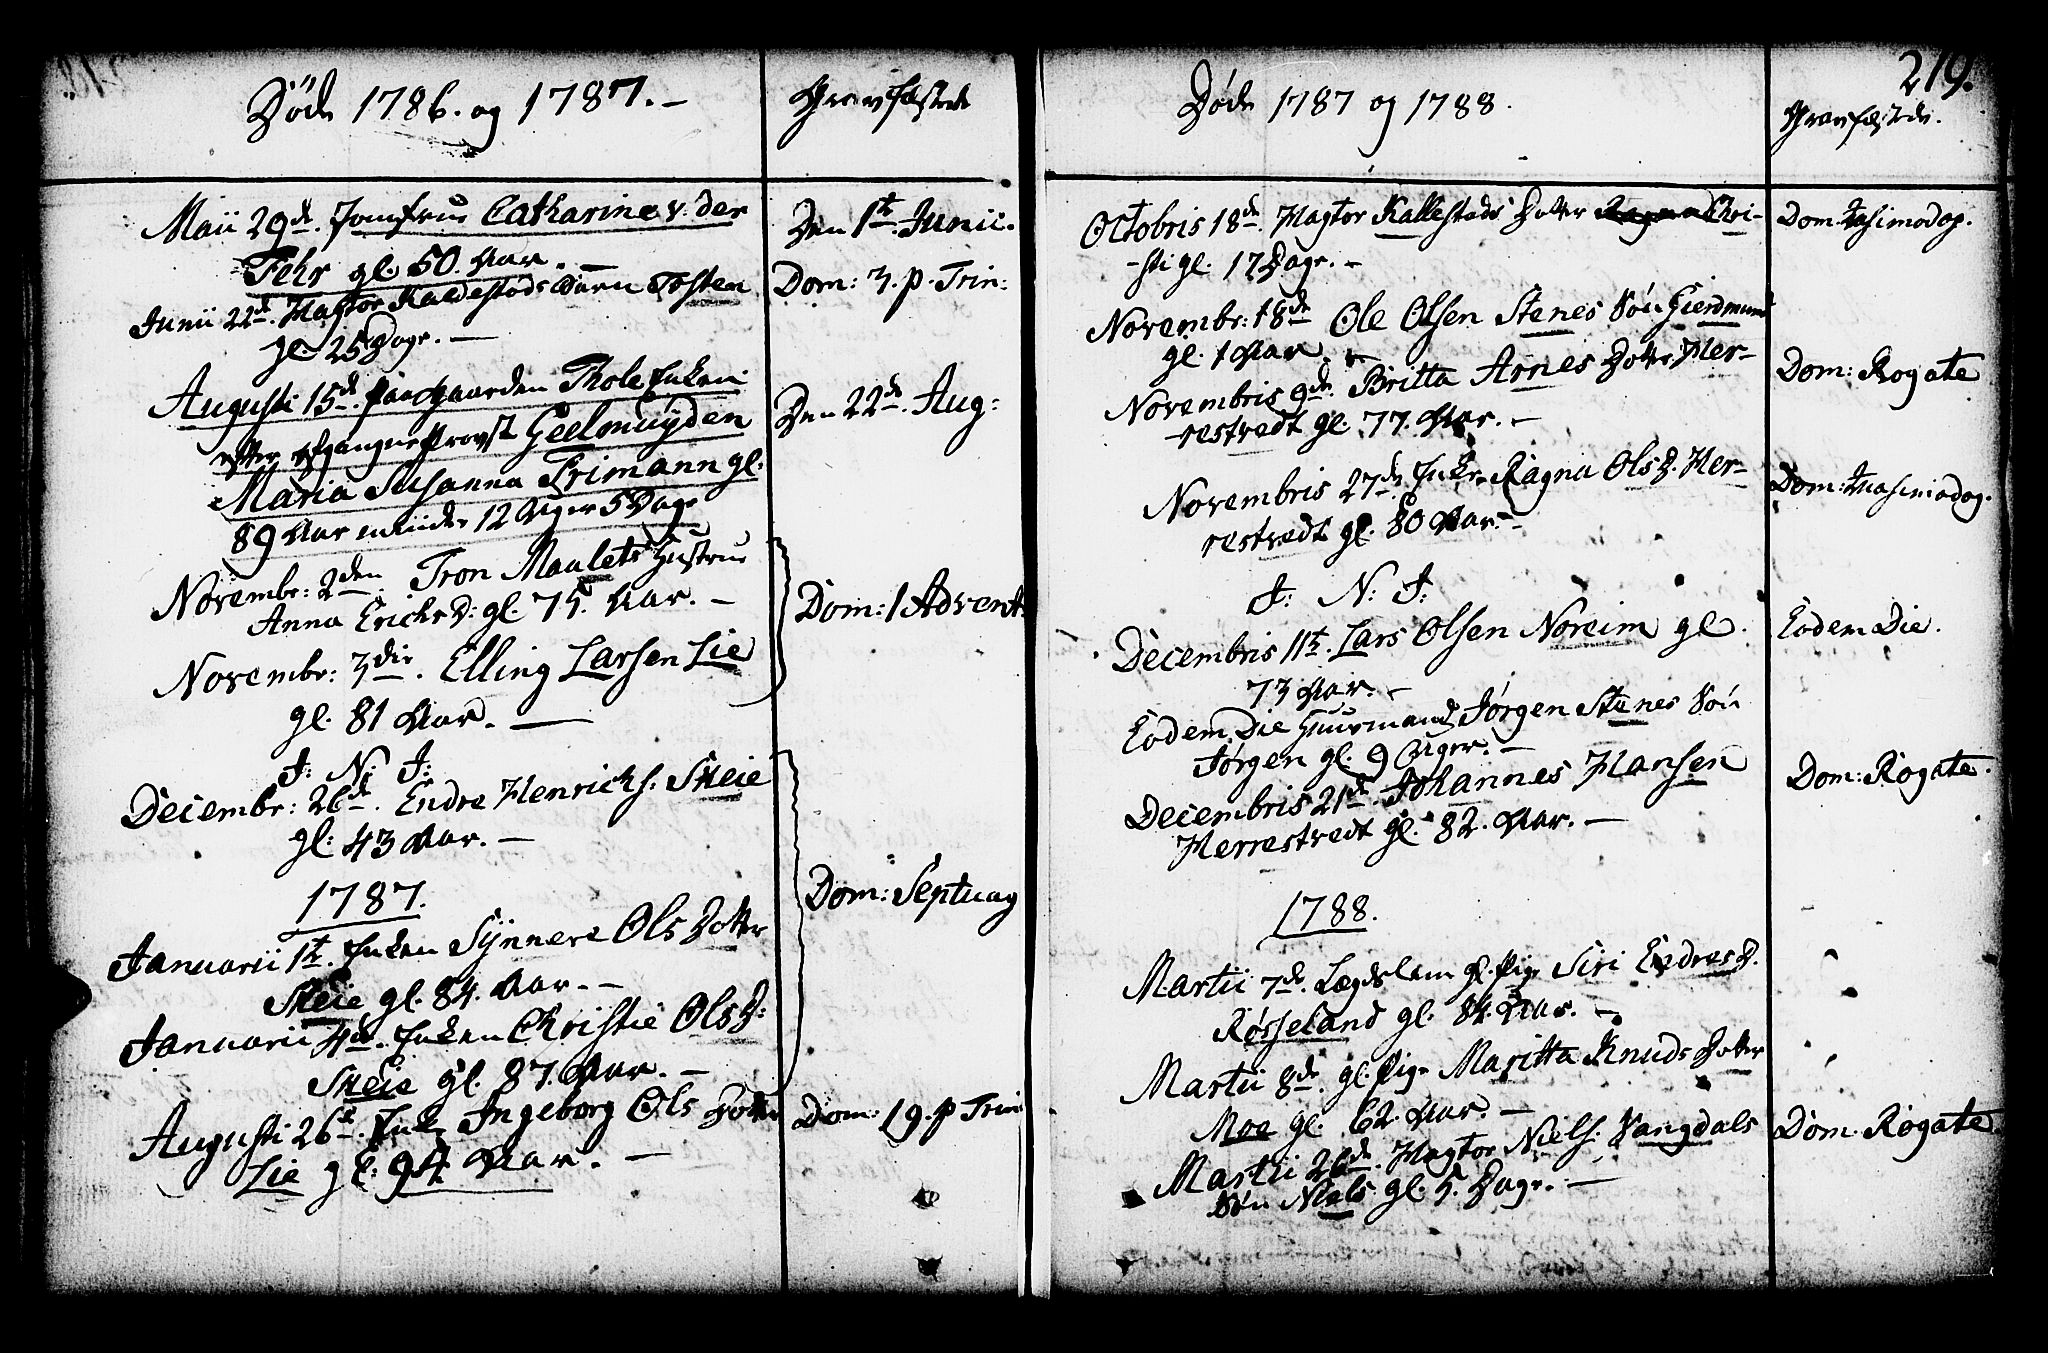 Døde 1786. og 1787. –
Gravfæstede
Maii 29de. Jomfrue Catharine v. der
Fehr gl. 50. Aar. –
Den 1te. Junii.
Junii 22de. Magtor Kaldestads Barn Tosten
gl. 25 Dage. –
Dom: 3. p. Trin:
Augusti 15de. paa Gaarden Thole Enken
efter afgangne Provst Geelmuÿden
Maria Susanna Trimann gl.
89 Aar 12 Uger 5 Dage
Den 22de. Aug:
Novembr: 2den. Tron Maulets Hustrue
Anna Erichs D: gl. 75. Aar. –
Novembr: 3die. Elling Larsen Lie
gl. 81 Aar. –
Dom: 1 Advent:
J: N: J:
Decembr: 26de. Endre Henrichs. Skeie
gl: 43 Aar. –
1787.
Januarii 1te. Enken Sÿnneve Ols Dotter
Skeie gl. 84. Aar. –
Januarii 4de. Enken Christie Ols D:
Skeie gl. 87. Aar. –
Dom: Septuag
Augusti 26de. Enke Ingeborg Ols Dotter
Lie gl: 94 Aar. –
Dom: 19. p Trin:
219.
Døde 1787 og 1788.
Gravfæstede.
Octobris 18de. Magtor Kallestads Dotter Chri-
-sti gl. 17 Dage. –
Dom: Quasimodog.
Novembr: 18de Ole Olsen Stenes Søn Gierdmund
gl. 1 Aar. –
Novembris 9de. Britta Arnes Dotter Her-
-restredt gl. 77. Aar. –
Dom: Rogate
Novembris 27de. Enke Ragna Ols D. Her-
restredt gl. 80 Aar. –
Dom: Quasimodog.
J: N: J:
Decembris 11te. Lars Olsen Noreim gl.
73 Aar. –
Eodem Die.
Eodem Die Huusmand Jørgen Stenes Søn
Jørgen gl. 9 Uger. –
Decembris 21de. Johannes Hansen
Herrestredt gl. 82. Aar. –
Dom: Rogate.
1788.
Martii 7de. Lægdslem gl. Pige Siri Endres D.
Røsseland gl. 84. Aar. –
Martii 8de. gl. Pige Maritta Knuds Dotter
Moe gl. 62. Aar. –
Martii 26de. Magtor Niels. Vangdals
Søn Niels gl. 5. Dage. –
Dom: Rogate.